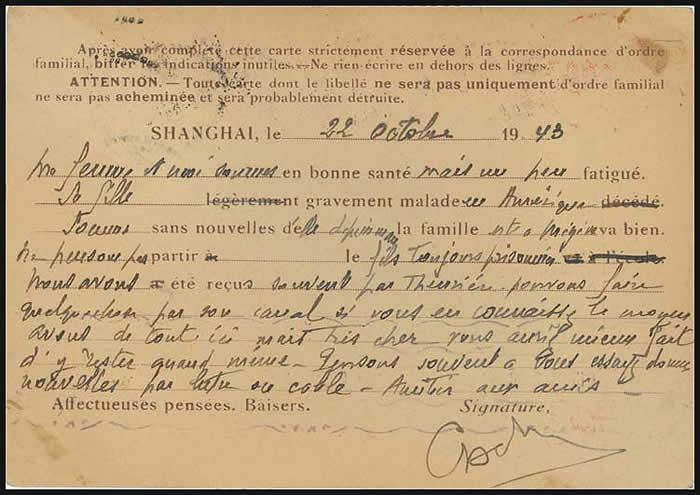 Après avoir complété cette carte strictement réservée à la correspondance d'ordre
familial, biffer les indications inutiles. — Ne rien écrire en dehors des lignes.
ATTENTION. — Toute carte dont le libellé ne sera pas uniquement d'ordre familial
ne sera pas acheminée et sera probablement détruite.
SHANGHAI, le 22 Octobre 1943
Ma femme et moi sommes en bonne santé mais un peu fatigué.
Sa fille légèrement gravement malade en Amérique décédé.
Sommes sans nouvelles d'elle depuis la famille va bien.
Ne pensons pas partir à le fils toujours prisonnier va à l'école.
Nous avons a été reçus souvent par pouvons faire
quelquechose par son canal si vous en le moyen
avons de tout ici mais très cher vous auriez mieux fait
d'y rester quand même - Pensons souvent à vous essayez donner
nouvelles par lettre ou cable - Amitiés aux amis -
Affectueuses pensées. Baisers. Signature,